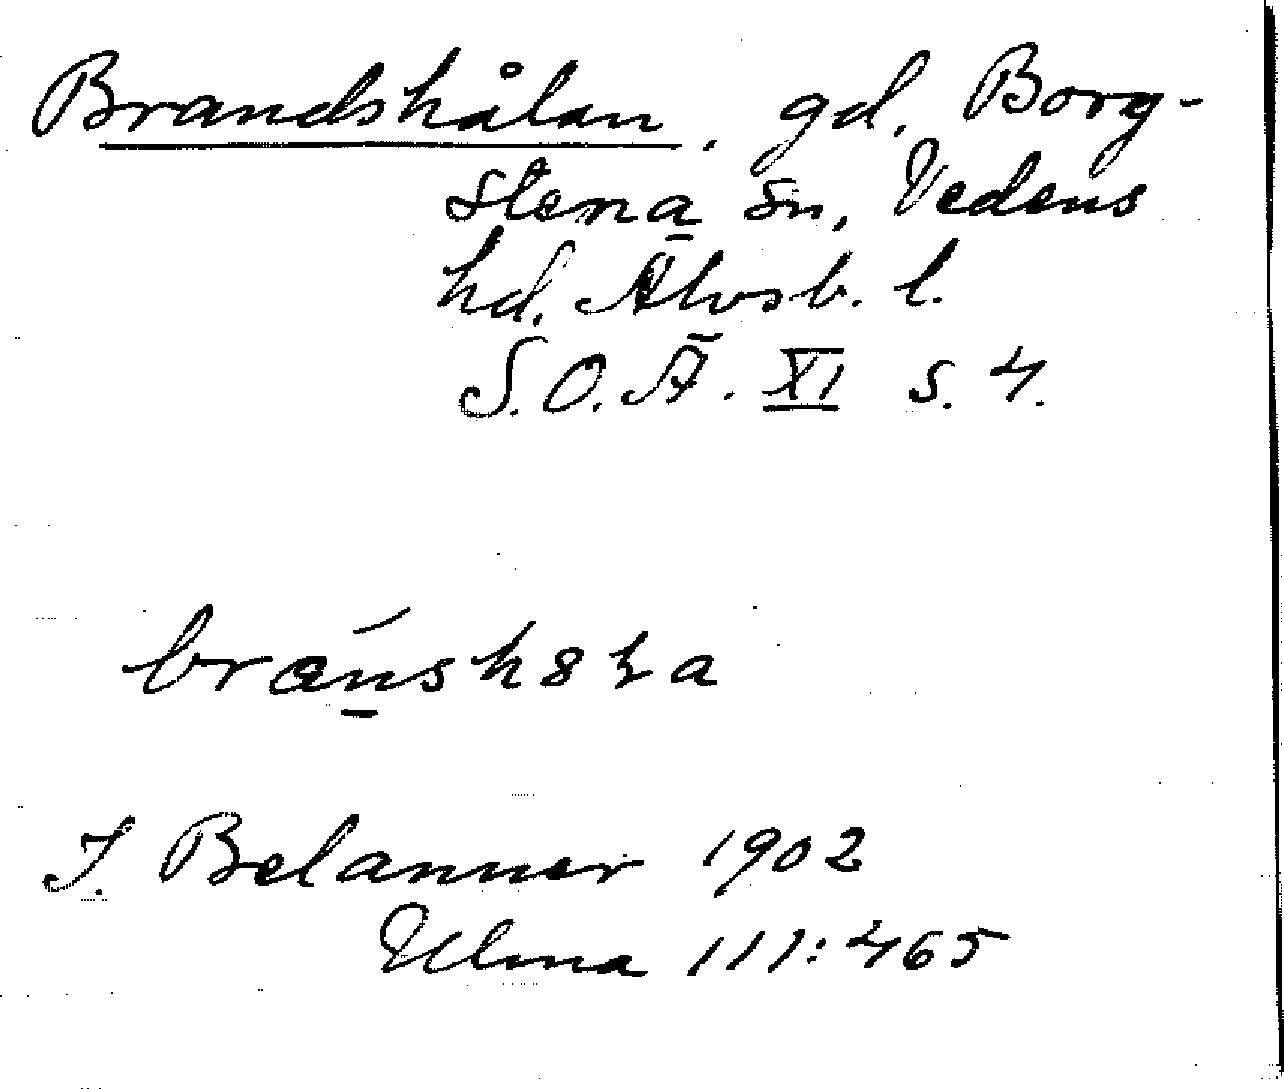 Brandshålan. gd. Borg-
stena sn, Vedens
hd. Älvsb. l.
S.O.Ä. XI s. 4.
J. Belanner 1902
Ulma 111:465